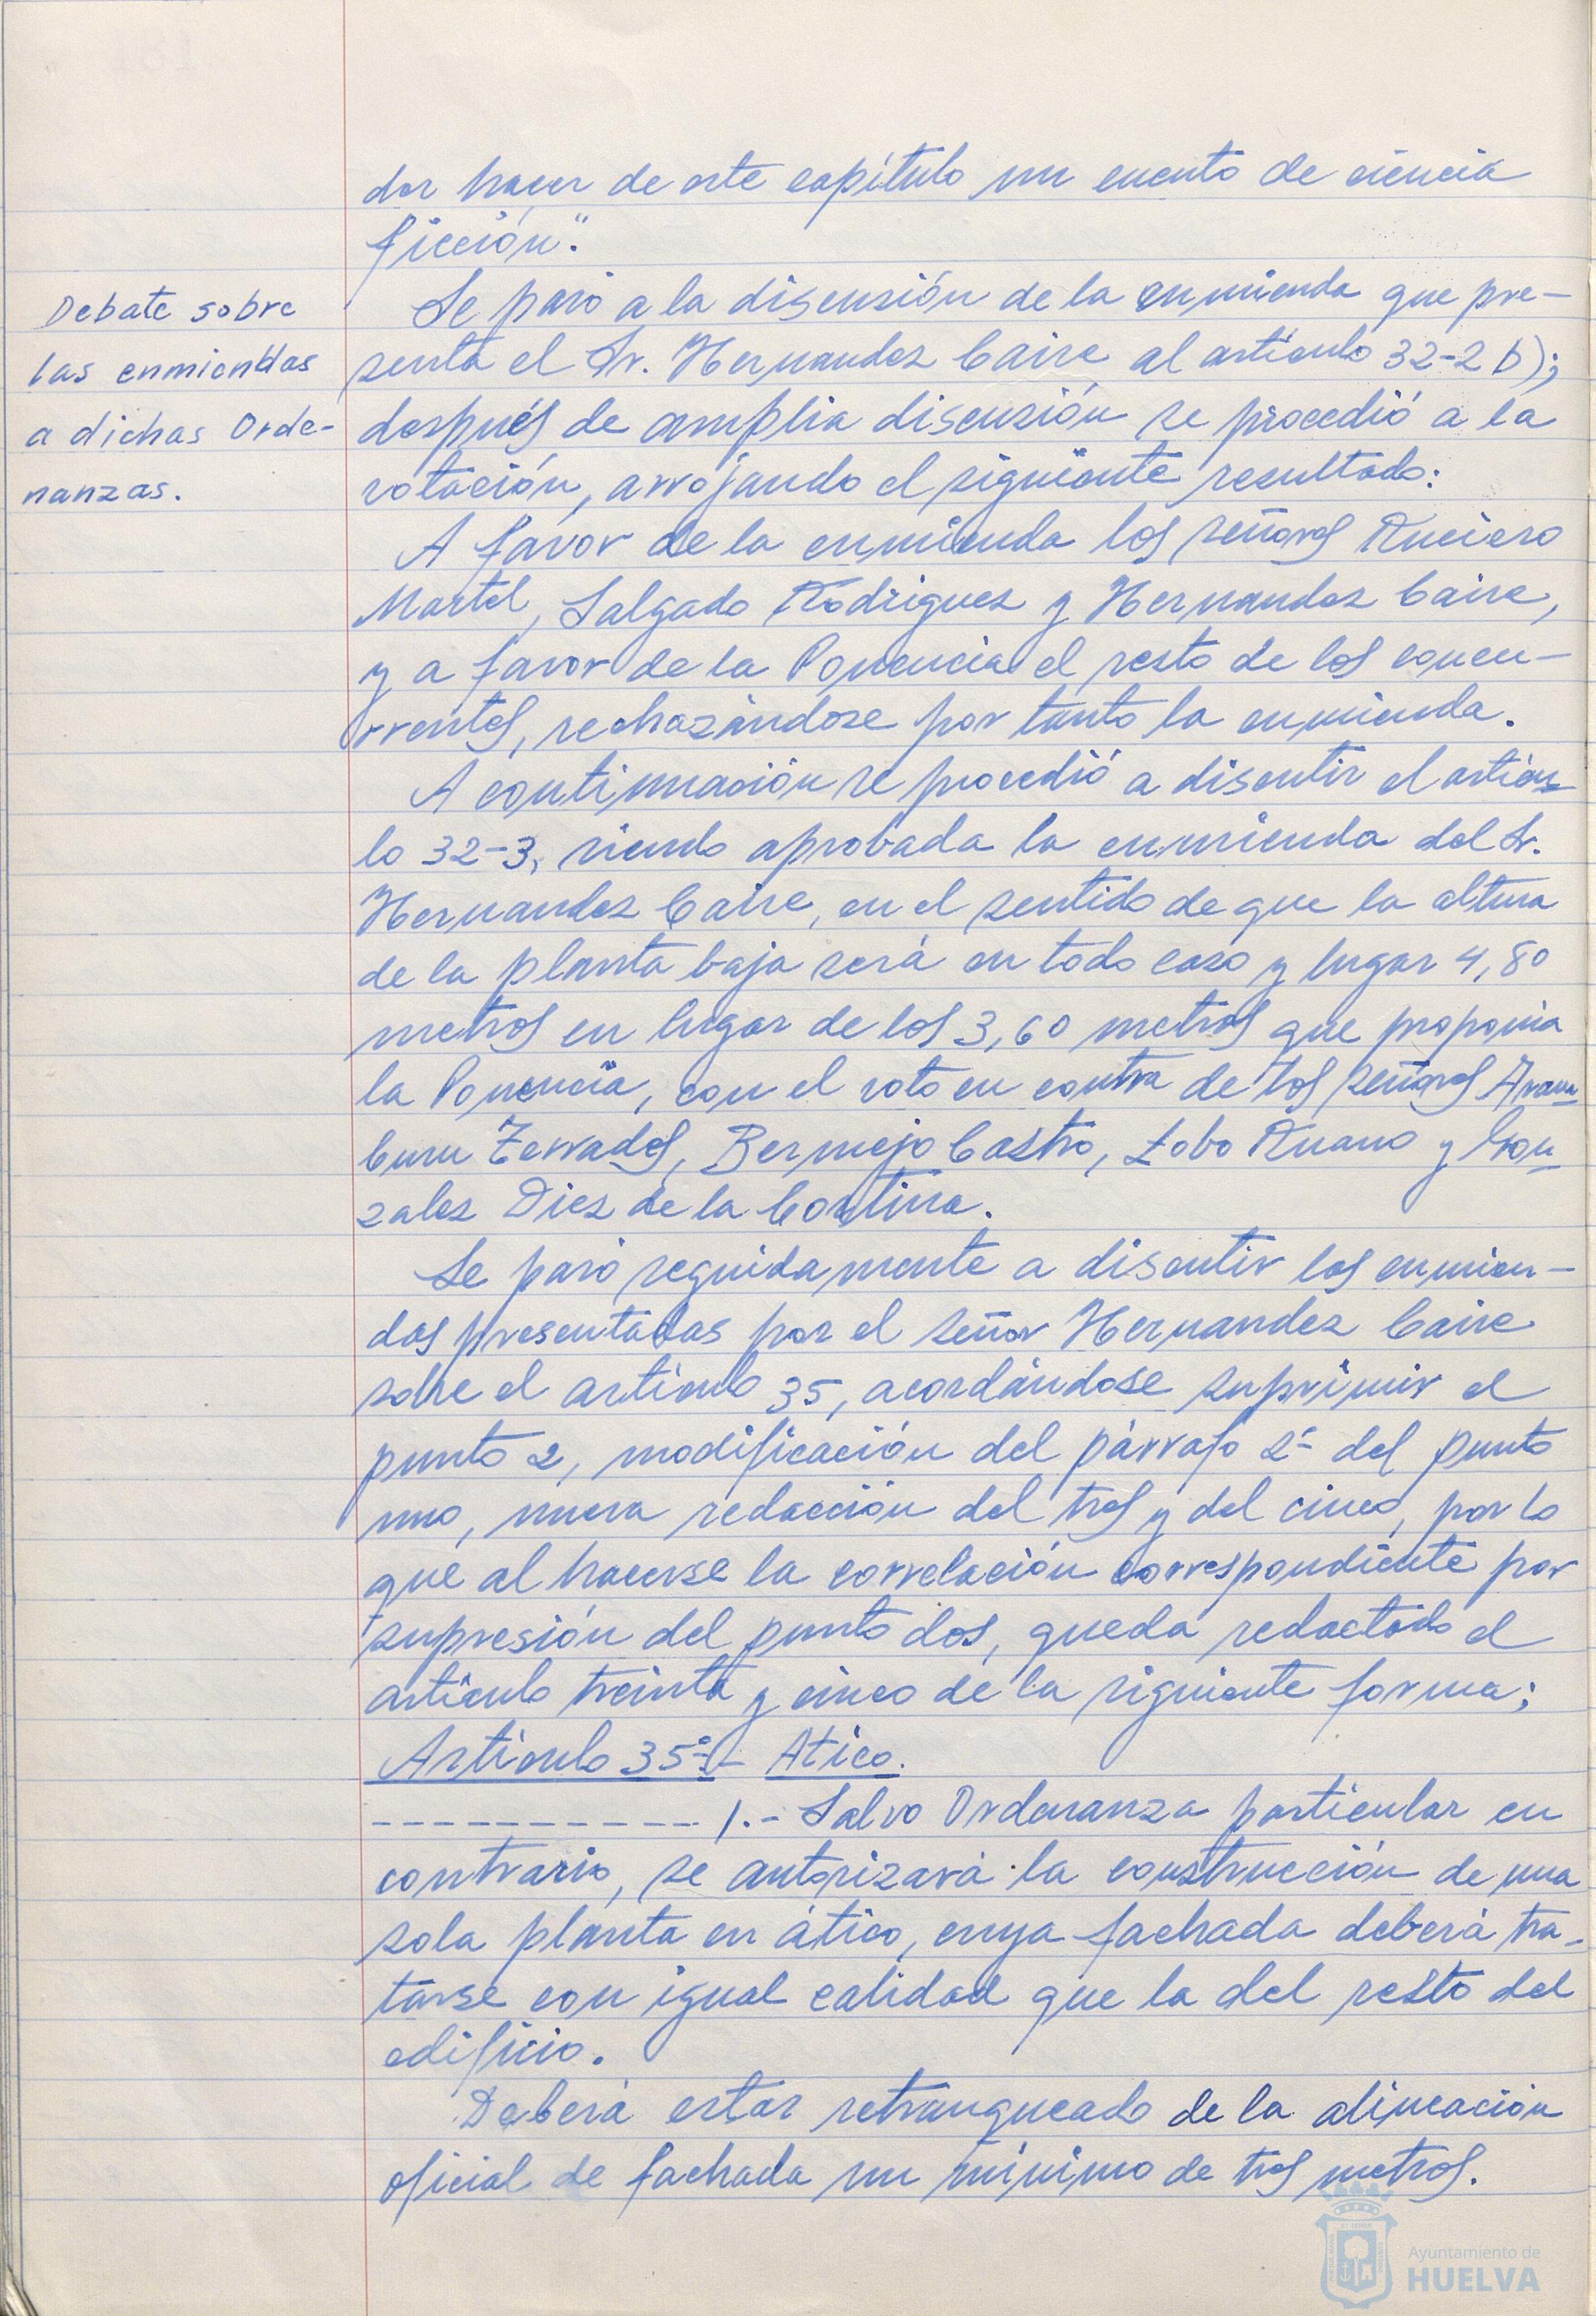 dor hacer de este capítulo un cuento de ciencia
ficción".
Debate sobre
las enmiendas
a dichas Orde-
nanzas.
Se pasó a la discusión de la enmienda que pre-
senta el Sr. Hernandez Caire al artículo 32-2 b);
después de amplia discusión se procedió a la
votación, arrojando el siguiente resultado:
A favor de la enmienda los señores Ruciero
Martel, Salgado Rodriguez y Hernandez Caire,
y a favor de la Ponencia el resto de los concu-
rrentes, rechazándose por tanto la enmienda.
A continuación se procedió a discutir el artícu-
lo 32-3, siendo aprobada la enmienda del Sr.
Hernandez Caire, en el sentido de que la altura
de la planta baja será en todo caso y lugar 4,80
metros en lugar de los 3,60 metros que proponía
la Ponencia, con el voto en contra de los señores Aram-
buru Terrades, Bermejo Castro, Lobo Ruano y Gon-
zalez Diez de la Cortina.
Se pasó seguidamente a discutir las enmien-
das presentadas por el señor Hernandez Caire
sobre el artículo 35, acordándose suprimir el
punto 2, modificación del párrafo 2º del punto
uno, nueva redacción del tres y del cinco, por lo
que al hacerse la correlación correspondiente por
supresión del punto dos, queda redactado el
artículo treinta y cinco de la siguiente forma;
Artículo 35º.- Atico.
----------- 1.- Salvo Ordenanza particular en
contrario, se autorizará la construcción de una
sola planta en ático, cuya fachada deberá tra-
tarse con igual calidad que la del resto del
edificio.
Deberá estar retranqueado de la alineación
oficial de fachada un mínimo de tres metros.
Ayuntamiento de
HUELVA